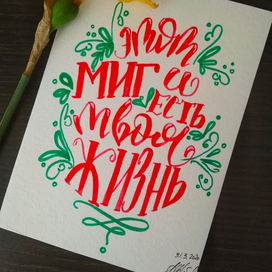 этот
миг и
есть
твоя
жизнь